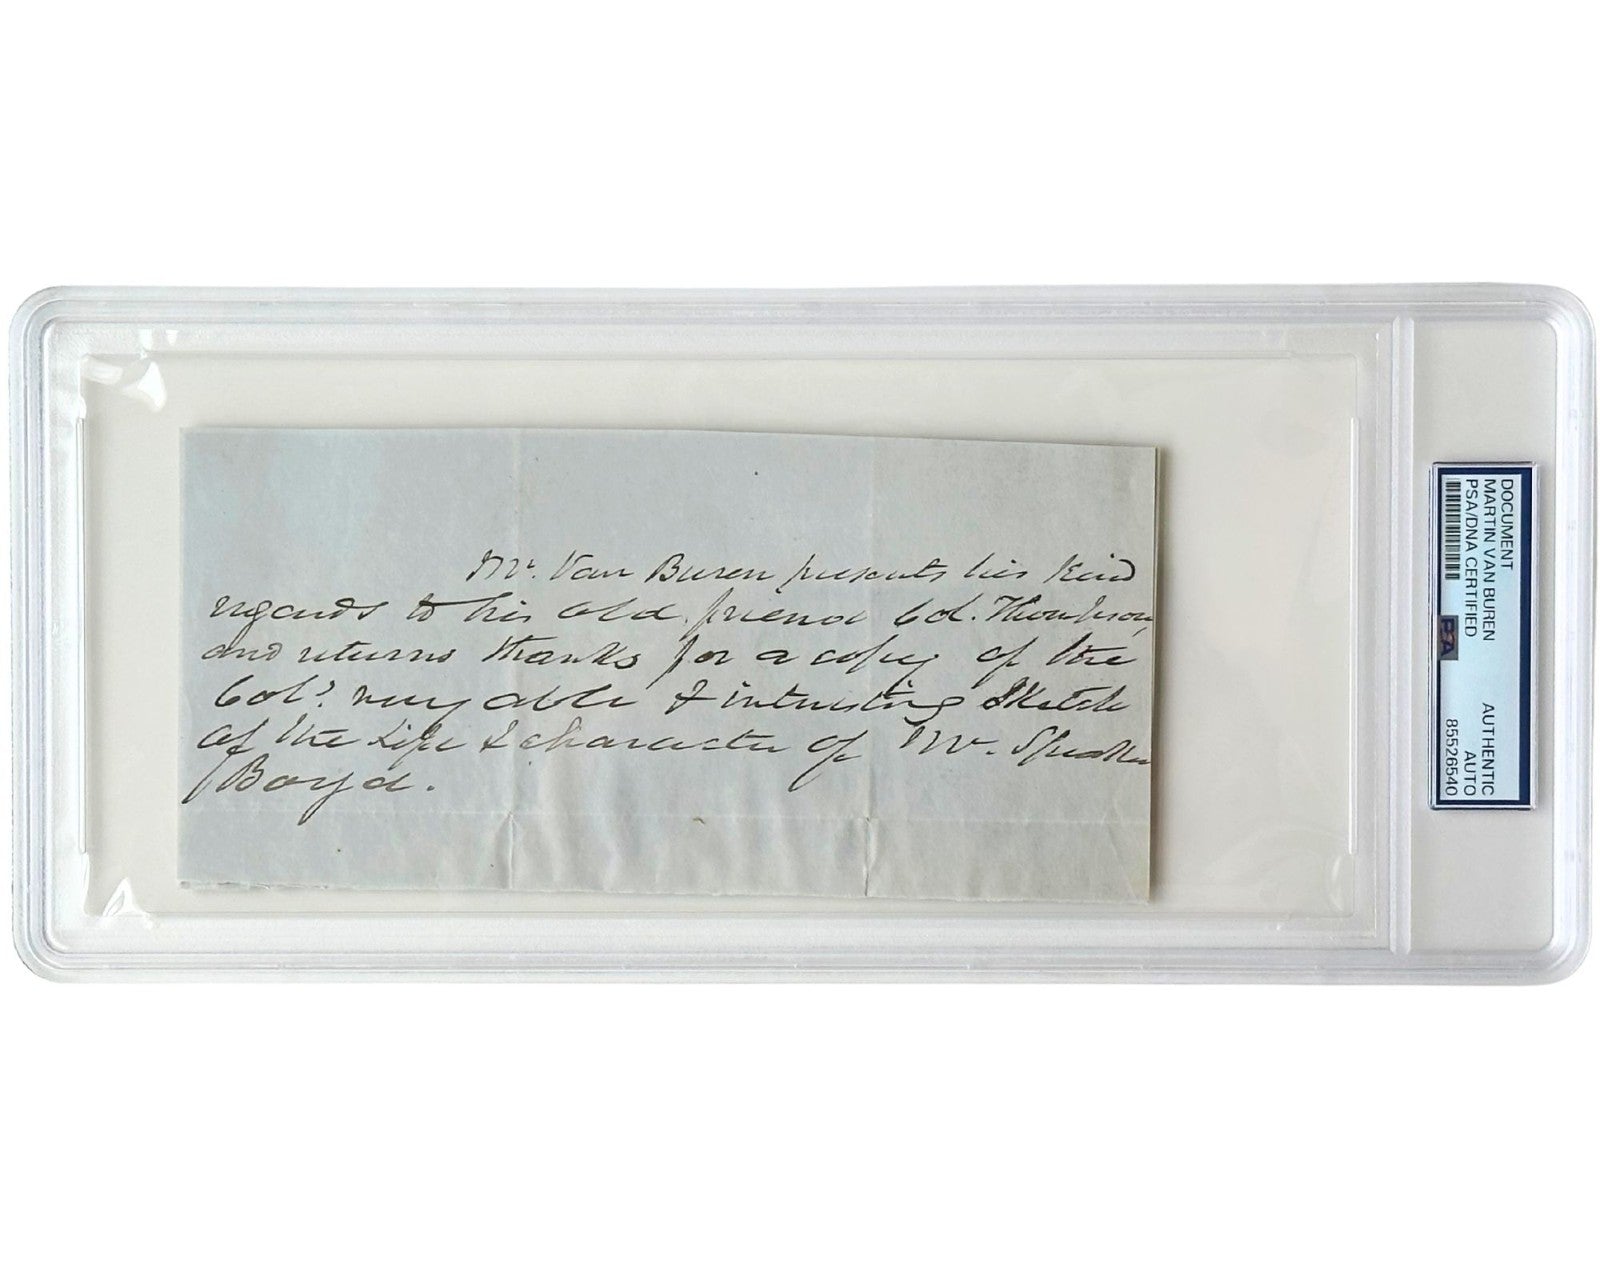 Mr. Van Buren presents his kind
regards to his old friend Col. Thompson,
and returns thanks for a copy of the
Col's very able & interesting sketch
of the Life & character of Mr. Speaker
Boyd.
DOCUMENT
MARTIN VAN BUREN AUTHENTIC
PSA/DNA CERTIFIED AUTO
85526540
PSA